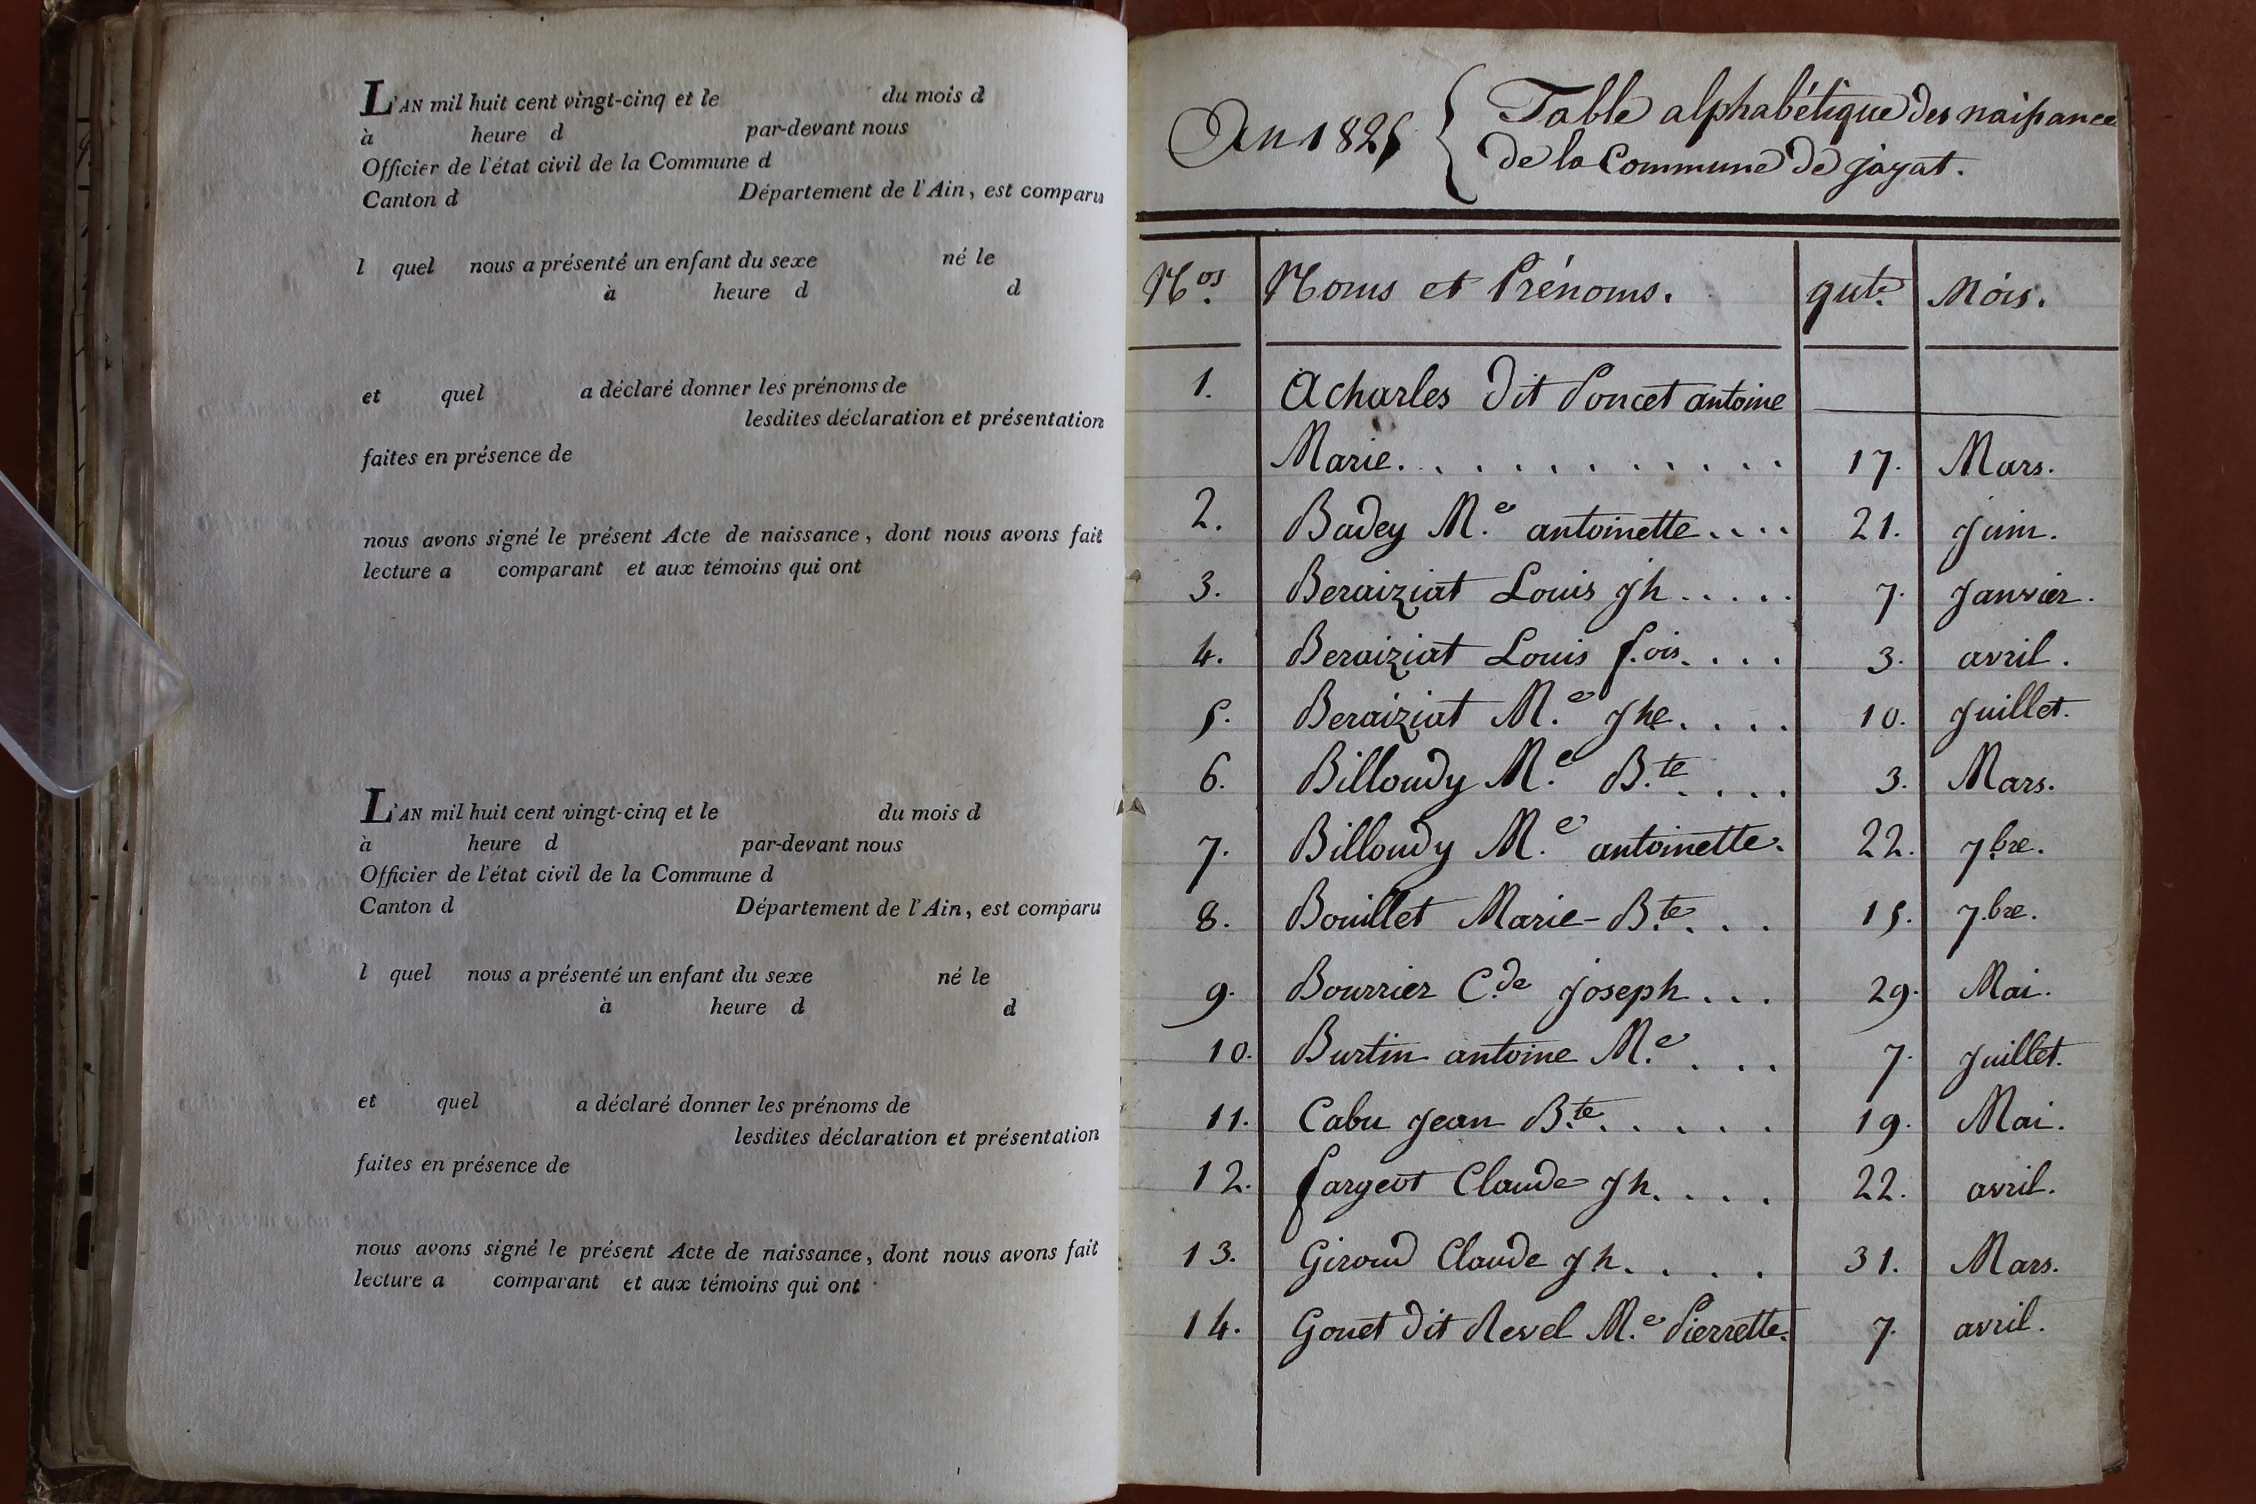 L'AN mil huit cent vingt-cinq et le du mois d
à heure d par-devant nous
Officier de l'état civil de la Commune d
Canton d Département de l'Ain, est comparu
l quel nous a présenté un enfant du sexe né le
à heure d d
et quel a déclaré donner les prénoms de
lesdites déclaration et présentation
faites en présence de
nous avons signé le présent Acte de naissance, dont nous avons fait
lecture a comparant et aux témoins qui ont
L'AN mil huit cent vingt-cinq et le du mois d
à heure d par-devant nous
Officier de l'état civil de la Commune d
Canton d Département de l'Ain, est comparu
l quel nous a présenté un enfant du sexe né le
à heure d d
et quel a déclaré donner les prénoms de
lesdites déclaration et présentation
faites en présence de
nous avons signé le présent Acte de naissance, dont nous avons fait
lecture a comparant et aux témoins qui ont
An 1825 { Table alphabétique des naissance
de la Commune de jayat.
Nos. Noms et Prénoms. qute. Mois.
1. Acharles dit Poncet antoine
Marie. . . . . . . . . . . 17. Mars.
2. Badey M.e antoinette . . . . 21. juin.
3. Beraiziat Louis jh . . . . . 7. janvier.
4. Beraiziat Louis f.ois. . . . 3. avril.
5. Beraiziat M.e jhe. . . . 10. juillet.
6. Billoudy M.e B.te . . . . 3. Mars.
7. Billoudy M.e antoinette. 22. 7.bre.
8. Bouillet Marie-B.te . . . 15. 7.bre.
9. Bourrier C.de joseph . . . 29. Mai.
10. Burtin antoine M.e . . . 7. juillet.
11. Cabu jean B.te . . . . . 19. Mai.
12. fargeot Claude jh. . . . 22. avril.
13. Giroud Claude jh. . . . 31. Mars.
14. Gouet dit Revel M.e Pierrette. 7. avril.